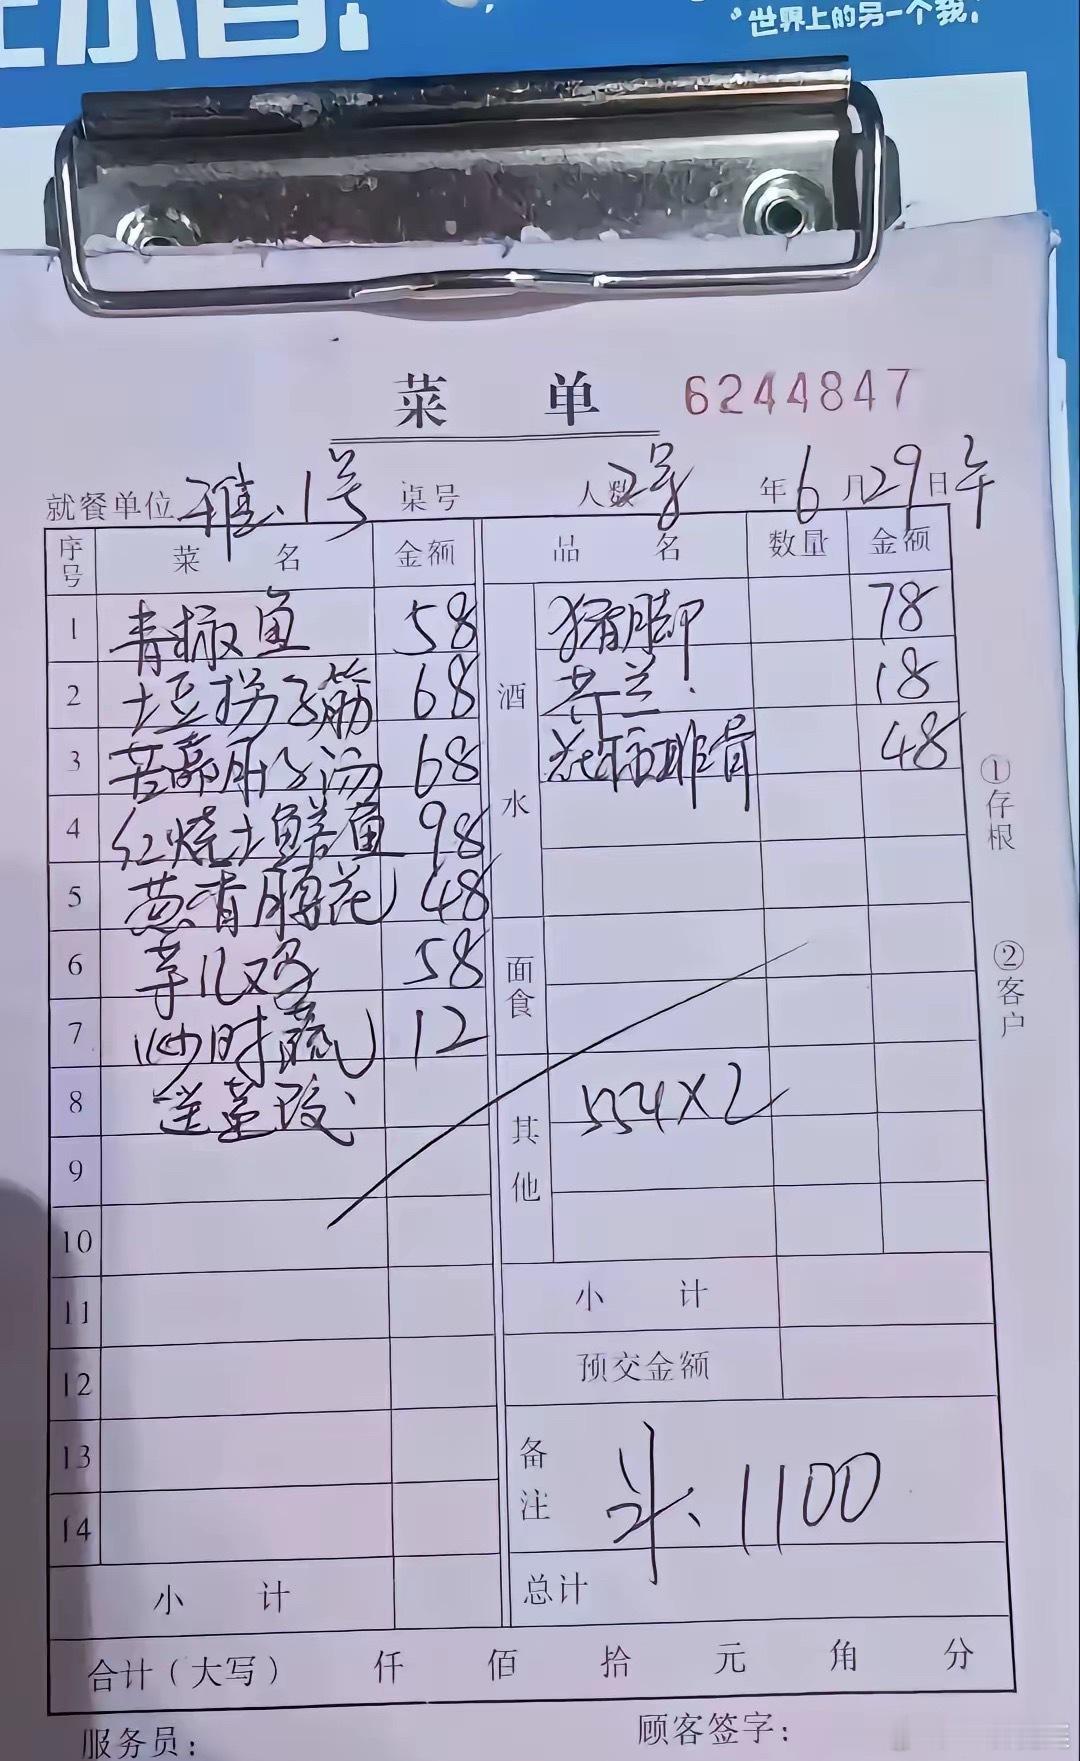 世界上的另一个我,
菜 单 6244847
就餐单位 雅、1号 桌号 人数 2号 年 6 月 29 日 午
序号 菜 名 金额 品 名 数量 金额
1 青椒鱼 58 酒水 猪脚 78
2 土豆拐子筋 68 芥兰 18
3 68 排骨 48
4 红烧土鲫鱼 98
5 葱香 花 48
6 芋儿鸡 58 面食
7 炒时蔬 12
8 其他 554×2
9
10
11 小 计
12 预交金额
13 备注 1100
14
小 计 总计
合计(大写) 仟 佰 拾 元 角 分
服务员: 顾客签字:
①存根
②客户